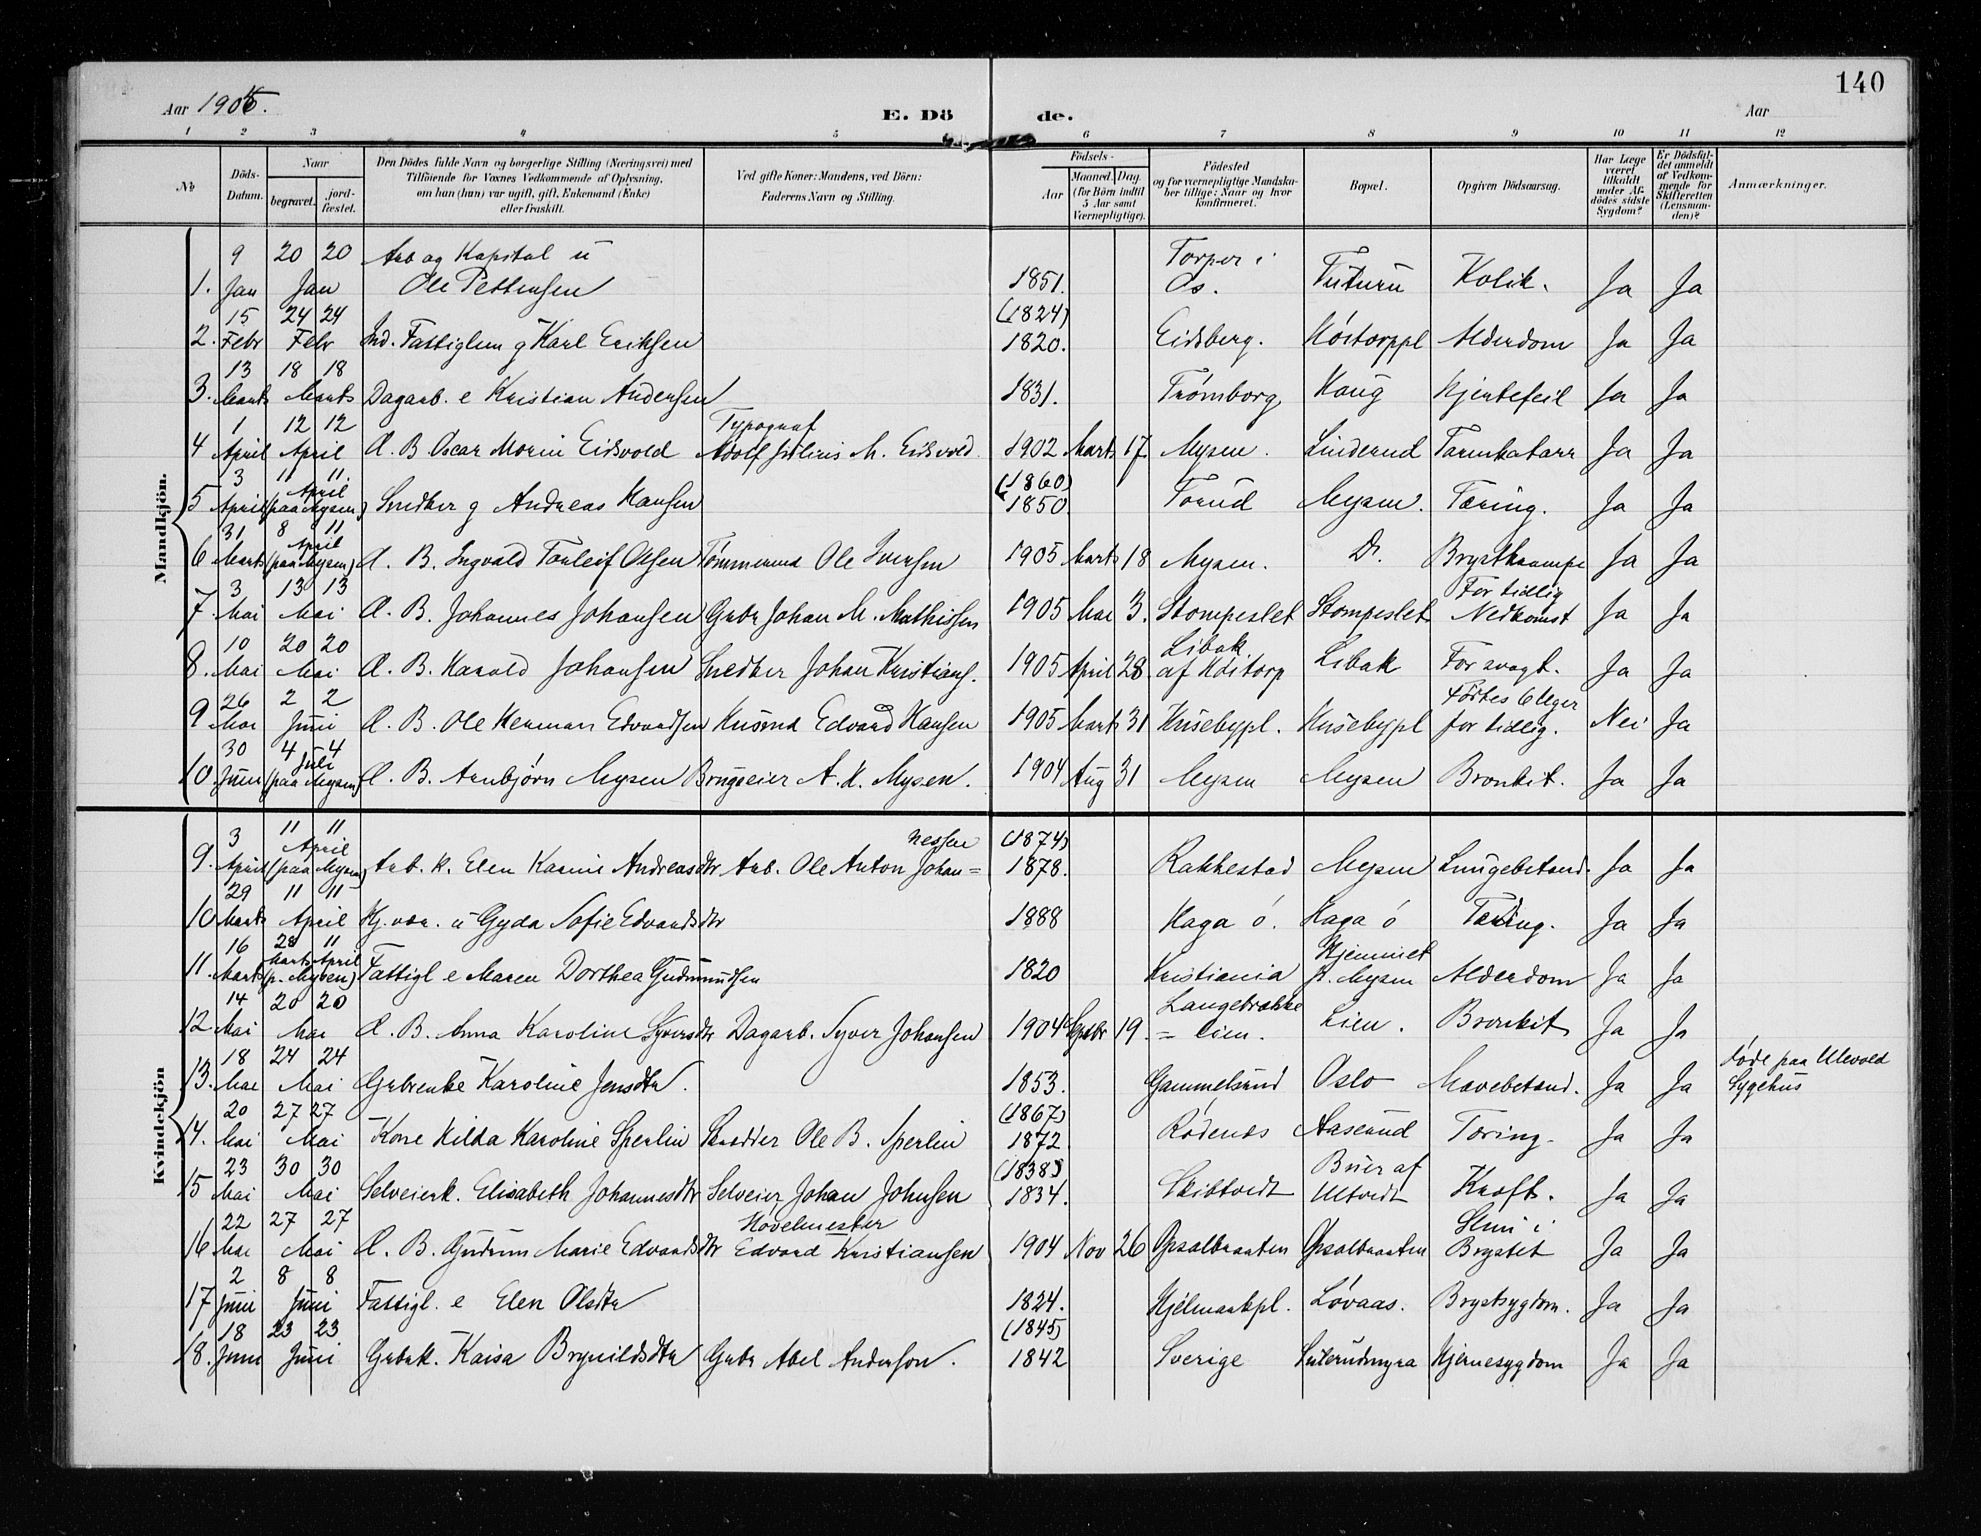 140
Aar 1905.
E. Dö de.
Aar
1 2 3 4 5 6 7 8 9 10 11 12
No
Döds-Datum.
Naar
begravet.
jord-fæstet.
Den Dödes fulde Navn og borgerlige Stilling (Næringsvei) med
Tilföiende for Voxnes Vedkommende af Oplysning,
om han (hun) var ugift, gift, Enkemand (Enke)
eller fraskilt.
Ved gifte Koner: Mandens, ved Börn:
Faderens Navn og Stilling.
Födsels-
Aar
Maaned. Dag.
(for Börn indtil
5 Aar samt
Værnepligtige).
Födested
og for værnepligtige Mandska-
ber tillige: Naar og hvor
konfirmeret.
Bopæl.
Opgiven Dödsaarsag.
Har Læge
været
tilkaldt
under Af-
dödes sidste
Sygdom?
Er Dödsfal-
det anmeldt
af Vedkom-
mende for
Skifteretten
(Lensman-
den)?
Anmærkninger.
Mandkjön.
1. 9 Jan 20 20 Jan Arb og Kapital u Ole Pettersen 1851. Torper i Os. Tuturu Kolik. Ja Ja
2. 15 Febr 24 24 Febr Ind. Fattiglem g Karl Eriksen (1824) 1820. Eidsberg. Höitorppl Alderdom Ja Ja
3. 13 Marts 18 18 Marts Dagarb. e Kristian Andersen 1831. Trömborg Haug Hjertefeil Ja Ja
4 1 April 12 12 April Æ. B. Oscar Morin Eidsvold Typograf Adolf Julius M. Eidsvold 1902 Marts 17 Mysen. Linderud Tarmkatarr Ja Ja
5 3 April 11 11. April (paa Mysen) Snedker g Andreas Hansen (1860) 1850 Torud Mysen. Tæring. Ja Ja
6 31 Marts 8 11 April (paa Mysen) Æ. B. Ingvald Torleif Olsen Tömmermd Ole Iversen 1905 Marts 18 Mysen. Do. Brystkrampe Ja Ja
7. 3 Mai 13 13 Mai Æ. B. Johannes Johansen Gubr Johan M. Mathissen 1905 Mai 3. Stompeslet Stompeslet For tidlig Nedkomst Ja Ja
8. 10 Mai 20 20 Mai Æ. B. Harald Johansen Snedker Johan Kristians. 1905 April 28. Libak af Höitorp Libak For svagt. Ja Ja
9 26 Mai 2 2 Juni Æ. B. Ole Herman Edvardsen Husmd Edvard Hansen 1905 Marts 31 Husebypl. Husebypl Födtes 6 Uger for tidlig. Nei Ja
10. 30 Juni 4 4 Juli (paa Mysen) Æ. B. Arnbjørn Mysen Brugseier A. H. Mysen. 1904 Aug 31 Mysen Mysen Bronkit. Ja Ja
Kvindekjön
9. 3 April 11 11 April (paa Mysen) Arb. k. Elen Karine Andreasdtr Arb. Ole Anton Johan=nessen (1874) 1878. Rakkestad Mysen Lungebetænd. Ja Ja
10 29 Marts 11 11 April Hj. vær. u Gyda Sofie Edvardsdtr 1888 Haga ö. Haga ö Tæring. Ja Ja
11. 16 Marts 28 Marts 11 April (p. Mysen) Fattigl e Maren Dorthea Gudmundsen 1820 Kristiania Hjemmet p. Mysen Alderdom Ja Ja
12. 14 Mai 20 20 Mai Æ. B. Anna Karoline Syversdtr Dagarb. Syver Johansen 1904 19. Langebrække=lien. Lien. Bronkit Ja Ja
13. 18 Mai 24 24 Mai Gubrenke Karoline Jensdtr. 1853. Gammelsrud Oslo Mavebetænd. Ja Ja döde paa Ulevold Sygehus
14. 20 Mai 27 27 Mai Kone Hilda Karoline Sperlin Skrædder Ole B. Sperlin (1867) 1872 Rödenæs Aaserud Tæring. Ja Ja
15 23 Mai 30 30 Mai Selveierk. Elisabeth Johannesdtr Selveier Johan Johnsen (1838) 1834. Skibtvedt Buer af Ultvedt Kræft. Ja Ja
16 22 Mai 27 27 Mai Æ. B. Gudrun Marie Edvardsdtr Hövelmester Edvard Kristiansen 1904 Nov 26 Opsalbraaten Opsalbraaten Slim i Brystet Ja Ja
17 2 Juni 8 8 Juni Fattigl. e Elen Olsdtr 1824. Hjelmarkpl. Lövaas. Brystsygdom. Ja Ja
18. 18 Juni 23 23 Juni Gubrk. Kaisa Brynildsdtr Gubr Abel Anderson. (1845) 1842 Sverige Sulerudmyra Hjernesygdom Ja Ja